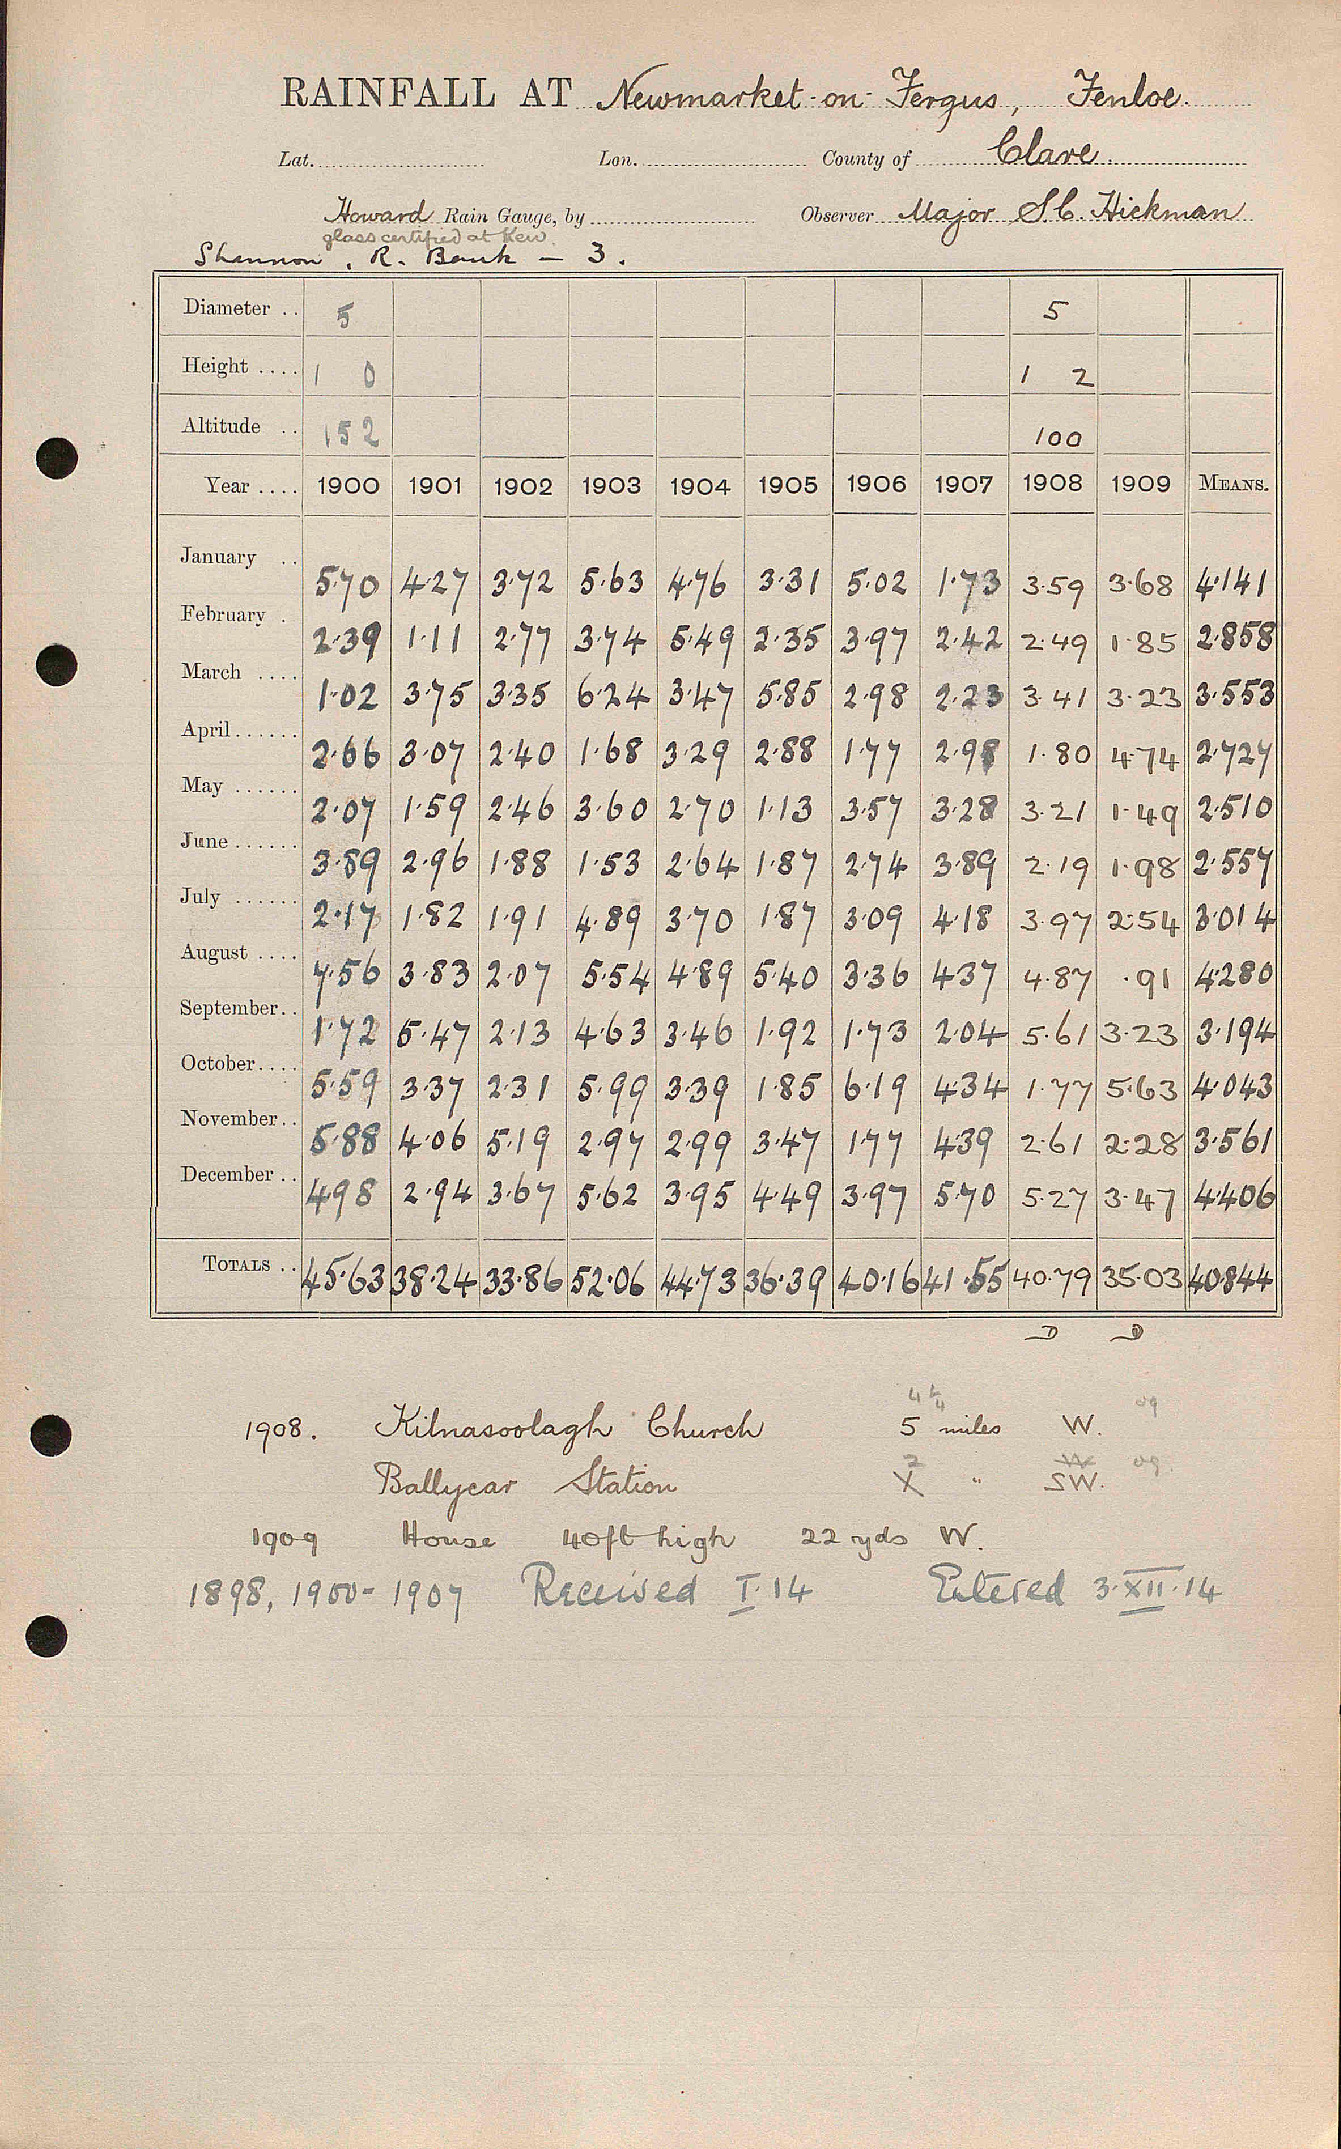 RAINFALL AT Newmarket-on-Fergus, Fenloe.
Lat. Lon. County of Clare.
Howard Rain Gauge, by Observer Major S.C. Hickman
glass certified at Kew.
Shannon . R. Bank – 3.
Diameter .. 5 5
Height .... 1 0 1 2
Altitude .. 152 100
Year .... 1900 1901 1902 1903 1904 1905 1906 1907 1908 1909 MEANS.
January .. 5·70 4·27 3·72 5·63 4·76 3·31 5·02 1·73 3·59 3·68 4·141
February . 2·39 1·11 2·77 3·74 5·49 2·35 3·97 2·42 2·49 1·85 2·858
March .... 1·02 3·75 3·35 6·24 3·47 5·85 2·98 2·23 3·41 3·23 3·553
April ...... 2·66 3·07 2·40 1·68 3·29 2·88 1·77 2·98 1·80 4·74 2·727
May ...... 2·07 1·59 2·46 3·60 2·70 1·13 3·57 3·28 3·21 1·49 2·510
June ...... 3·89 2·96 1·88 1·53 2·64 1·87 2·74 3·89 2·19 1·98 2·557
July ...... 2·17 1·82 1·91 4·89 3·70 1·87 3·09 4·18 3·97 2·54 3·014
August .... 7·56 3·83 2·07 5·54 4·89 5·40 3·36 4·37 4·87 ·91 4·280
September .. 1·72 5·47 2·13 4·63 3·46 1·92 1·73 2·04 5·61 3·23 3·194
October .... 5·59 3·37 2·31 5·99 3·39 1·85 6·19 4·34 1·77 5·63 4·043
November .. 5·88 4·06 5·19 2·97 2·99 3·47 1·77 4·39 2·61 2·28 3·561
December .. 4·98 2·94 3·67 5·62 3·95 4·49 3·97 5·70 5·27 3·47 4·406
TOTALS .. 45·63 38·24 33·86 52·06 44·73 36·39 40·16 41·55 40·79 35·03 40·844
D D
1908. Kilnasoolagh Church 5 miles W.
Ballycar Station 2 " SW.
1909 House 40ft high 22 yds W.
1898, 1900-1907 Received I·14 Entered 3·XII·14